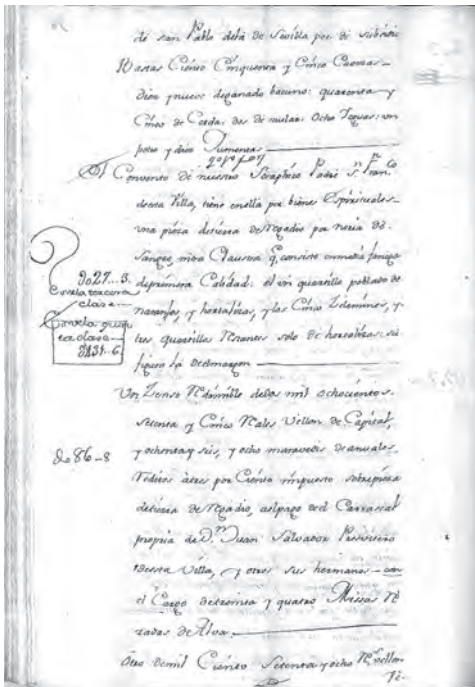 de san Pablo dela de Sevilla por de subsidio
Vastas Ciento Cinquenta y Cinco Cavezas
diez y nueve deganado bacuno: quarenta y
Cinco de Cerda: dos de mular: Ocho Yeguas: un
potro y diez Jumentas
El Convento de nuestro Seraphico Padre Sn. Franco
desta Villa, tiene enella por bienes Espirituales
una pieza detierra deRegadio por noria de
Sangre, intra Clausura q. consiste en media fanega
deprimera Calidad: el un quartillo poblado de
naranjos, y hortaliza, y los Cinco Zelemines, y
tres quartillos Restantes solo de hortaliza: su
figura la delmargen
do27...3.
Con la tercera
clase
Con la quar
ta clase
do131..6.
Un Zenso Redimible dedos mil ochocientos
Setenta y Cinco Reales Vellon de Capital,
y ochenta y seis, y ocho maravedis de anuales
Reditos atres por Ciento impuesto sobrepieza
detierra de Regadio, alpago del Carrascal
propia de Dn. Juan Salvador Presvitero
desta Villa, y otros sus hermanos con
el Cargo detreinta y quatro Missas Re
zadas de Alva.
do86..8
Otro demil Ciento Setenta y ocho Rs. vellon